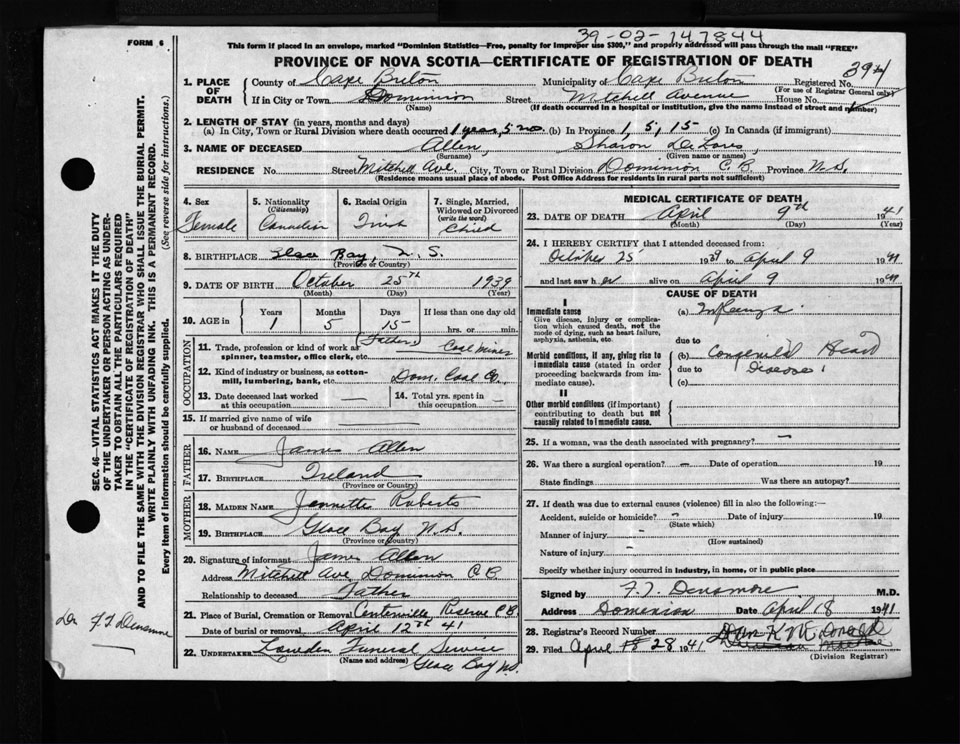 39-02-147844
FORM 6
This form if placed in an envelope, marked "Dominion Statistics—Free, penalty for improper use $300," and properly addressed will pass through the mail "FREE"
PROVINCE OF NOVA SCOTIA—CERTIFICATE OF REGISTRATION OF DEATH
1. PLACE OF DEATH County of Cape Breton Municipality of Cape Breton Registered No. 394
(For use of Registrar General only)
If in City or Town Dominion Street Mitchell Avenue House No.
(Name) (If death occurred in a hospital or institution, give the name instead of street and number)
2. LENGTH OF STAY (in years, months and days)
(a) In City, Town or Rural Division where death occurred 1 year, 5 mo. (b) In Province 1, 5, 15 (c) In Canada (if immigrant)
3. NAME OF DECEASED Allen, Sharon DeLores
(Surname) (Given name or names)
RESIDENCE No. Street Mitchell Ave. City, Town or Rural Division Dominion C.B. Province N.S.
(Residence means usual place of abode. Post Office Address for residents in rural parts not sufficient)
4. Sex Female
5. Nationality (Citizenship) Canadian
6. Racial Origin Irish
7. Single, Married, Widowed or Divorced (write the word) Child
8. BIRTHPLACE Glace Bay, N.S.
(Province or Country)
9. DATE OF BIRTH October 25th 1939
(Month) (Day) (Year)
10. AGE in Years Months Days If less than one day old
1 5 15 hrs. or min.
OCCUPATION
11. Trade, profession or kind of work as spinner, teamster, office clerk, etc. (Father) Coal Miner
12. Kind of industry or business, as cotton-mill, lumbering, bank, etc. Dom. Coal Co.
13. Date deceased last worked at this occupation —
14. Total yrs. spent in this occupation —
15. If married give name of wife or husband of deceased —
FATHER
16. NAME James Allen
17. BIRTHPLACE Ireland
(Province or Country)
MOTHER
18. MAIDEN NAME Jennette Roberts
19. BIRTHPLACE Glace Bay N.S.
(Province or Country)
20. Signature of informant James Allen
Address Mitchell Ave Dominion C.B.
Relationship to deceased Father
21. Place of Burial, Cremation or Removal Reserve C.B.
Date of burial or removal April 12th 41
22. UNDERTAKER Funeral Service
(Name and address) Glace Bay N.S.
MEDICAL CERTIFICATE OF DEATH
23. DATE OF DEATH April 9th 1941
(Month) (Day) (Year)
24. I HEREBY CERTIFY that I attended deceased from:
October 25 1939 to April 9 1941
and last saw her alive on April 9 1941
CAUSE OF DEATH
I
Immediate cause
Give disease, injury or complication which caused death, not the mode of dying, such as heart failure, asphyxia, asthenia, etc.
(a)
due to
Morbid conditions, if any, giving rise to immediate cause (stated in order proceeding backwards from immediate cause).
(b) Congenital Heart
due to Disease
(c)
II
Other morbid conditions (if important) contributing to death but not causally related to immediate cause.
25. If a woman, was the death associated with pregnancy? —
26. Was there a surgical operation? — Date of operation 19
State findings Was there an autopsy?
27. If death was due to external causes (violence) fill in also the following:—
Accident, suicide or homicide? – Date of injury 19
(State which)
Manner of injury –
(How sustained)
Nature of injury –
Specify whether injury occurred in industry, in home, or in public place
Signed by F. J. Densmore M.D.
Address Dominion Date April 18 1941
28. Registrar's Record Number
29. Filed April 28 1941
(Division Registrar)
SEC. 46—VITAL STATISTICS ACT MAKES IT THE DUTY OF THE UNDERTAKER OR PERSON ACTING AS UNDERTAKER TO OBTAIN ALL THE PARTICULARS REQUIRED IN THE "CERTIFICATE OF REGISTRATION OF DEATH" AND TO FILE THE SAME WITH THE DIVISION REGISTRAR WHO SHALL ISSUE THE BURIAL PERMIT.
WRITE PLAINLY WITH UNFADING INK. THIS IS A PERMANENT RECORD.
Every item of information should be carefully supplied. (See reverse side for instructions.)
Dr F J Densmore